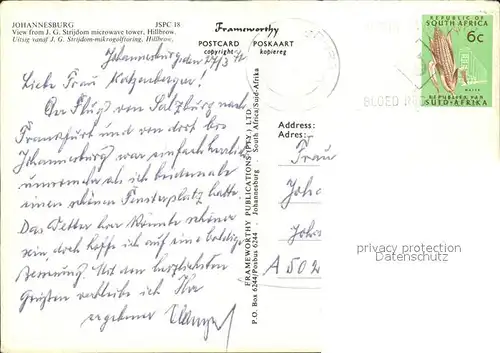 JOHANNESBURG JSPC 18
View from J. G. Strijdom microwave tower, Hillbrow.
Uitsig vanaf J. G. Strijdom-mikrogolftoring, Hillbrow.
Frameworthy
POSTCARD POSKAART
copyright kopiereg
REPUBLIC OF
SOUTH AFRICA
6c
REPUBLIEK VAN
SUID-AFRIKA
BLOED
Johannesburg, den 27/3 72
Liebe Frau Katzenberger!
Der Flug von Salzburg nach
Frankfurt und von dort bis
Johannesburg war einfach herrlich
umsomehr als ich beidemale
einen schönen Fensterplatz hatte.
Das Wetter hier könnte schöner
sein, doch hoffe ich auf eine baldige
Besserung. Mit den herzlichsten
Grüßen verbleibe ich Ihr
ergebener
FRAMEWORTHY PUBLICATIONS (PTY.) LTD.
P.O. Box 6244/Posbus 6244 Johannesburg South Africa/Suid-Afrika
Address:
Adres:
Frau
Joh
Joh
A 502
privacy protection
Datenschutz